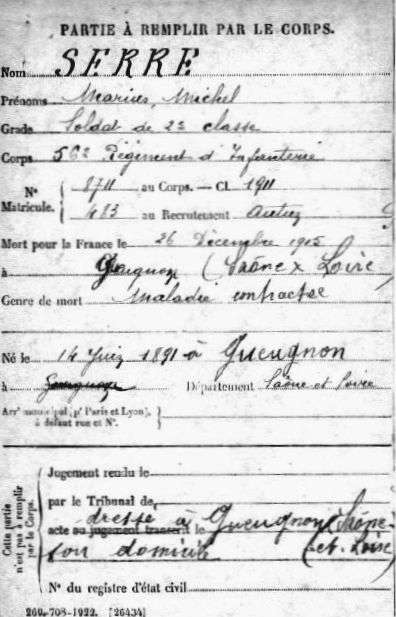 PARTIE À REMPLIR PAR LE CORPS.
Nom SERRE
Prénoms Marius, Michel
Grade Soldat de 2e classe
Corps 56e Régiment d'Infanterie
N° Matricule. { 8711 au Corps. — Cl. 1911
483 au Recrutement Autun
Mort pour la France le 26 Décembre 1915
à Gueugnon (Saône & Loire)
Genre de mort Maladie contractée
Né le 14 Juin 1891 à Gueugnon
à Département Saône et Loire
Arrt municipal (pr Paris et Lyon), à défaut rue et N°. }
Cette partie n'est pas à remplir par le Corps.
Jugement rendu le
par le Tribunal de
acte ou jugement transcrit le dressé à Gueugnon (Saône
son domicile et Loire)
N° du registre d'état civil
260-708-1922. [26434]